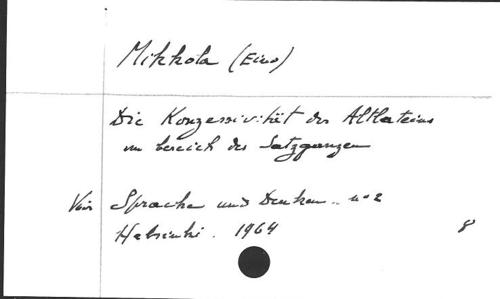 Mikkola (Eino)
Die Konzessivität des Altlateins
im bereich des Satzganzen
Voir Sprache und Denken. n° 2
Helsinki. 1964 8